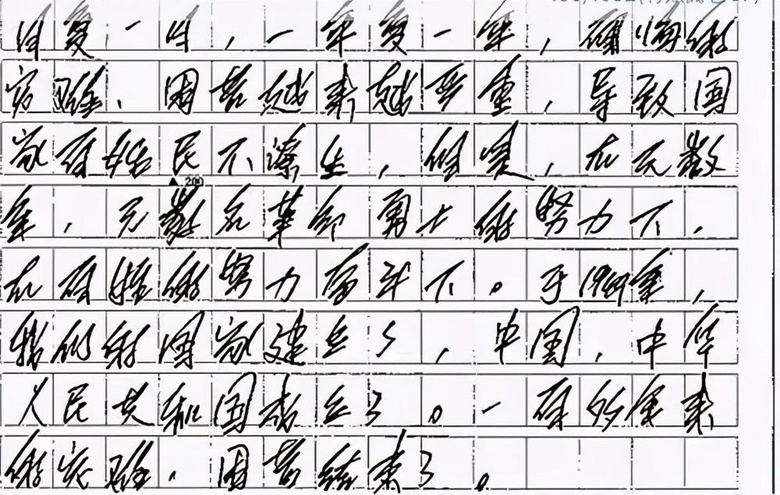 日复一日，一年复一年，百姓的
灾难、困苦越来越严重，导致国
家百姓民不潦生，但是，在无数
年，无数名革命勇士的努力下，
200
在百姓的努力奋斗下。于1949年，
我们的国家建立了，中国，中华
人民共和国成立了。一百多年来
的灾难，困苦结束了。